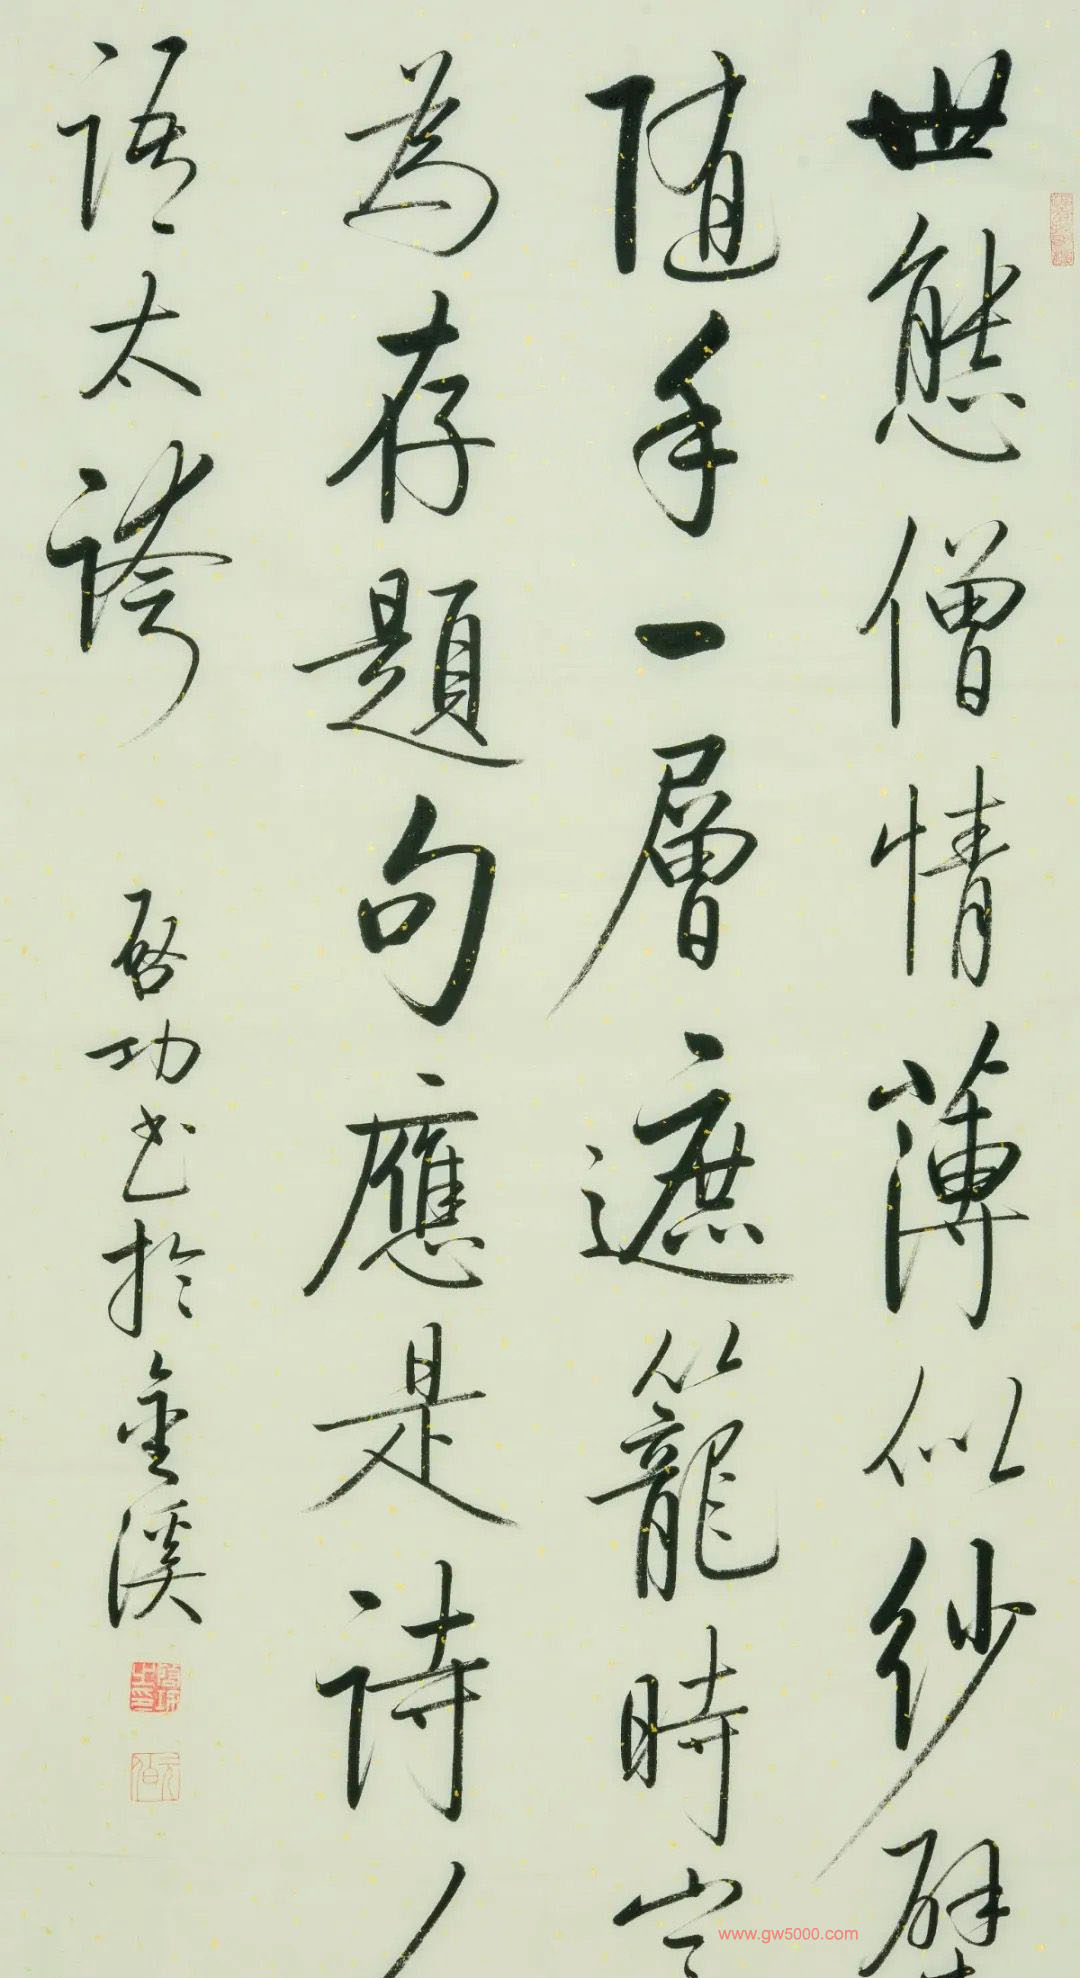 世態僧情薄似紗壁
隨手一層遮籠時豈
為存題句應是詩人
語太誇
啓功书於金溪
www.gw5000.com